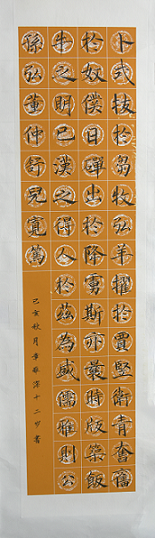 卜式拔於芻牧弘羊擢於賈豎衛青奮
於奴僕日磾出於降虜斯亦曩時版築飯
牛之明已漢之得人於茲為盛儒雅則公
孫弘董仲舒兒寬篤
己亥秋月章雅十二岁書